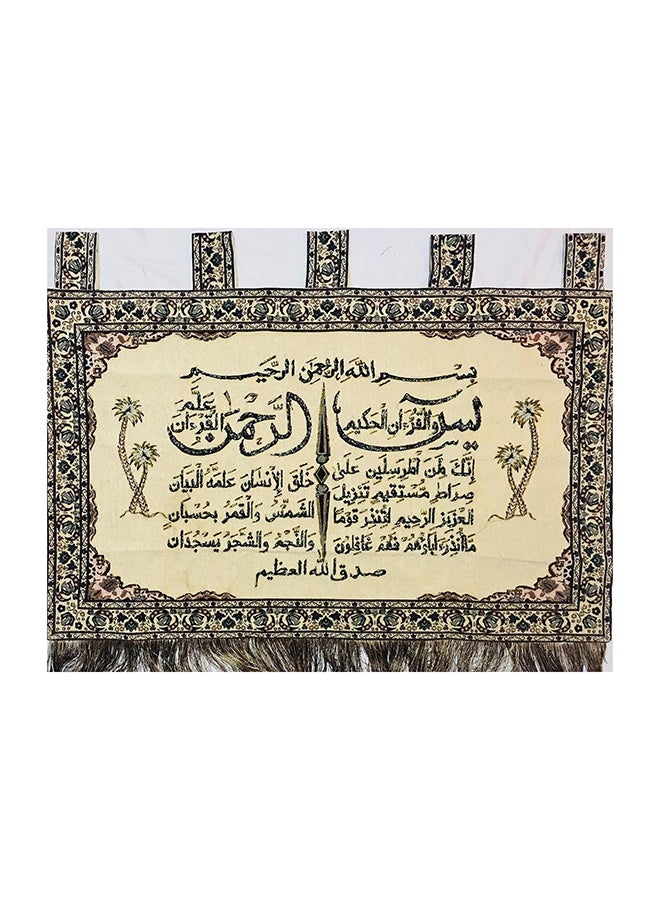 بسم الله الرحمن الرحيم
يس والقرءان الحكيم
إنك لمن المرسلين على
صراط مستقيم تنزيل
العزيز الرحيم لتنذر قوما
ما أنذر ءاباؤهم فهم غافلون
الرحمن علم القرءان
خلق الإنسان علمه البيان
الشمس والقمر بحسبان
والنجم والشجر يسجدان
صدق الله العظيم